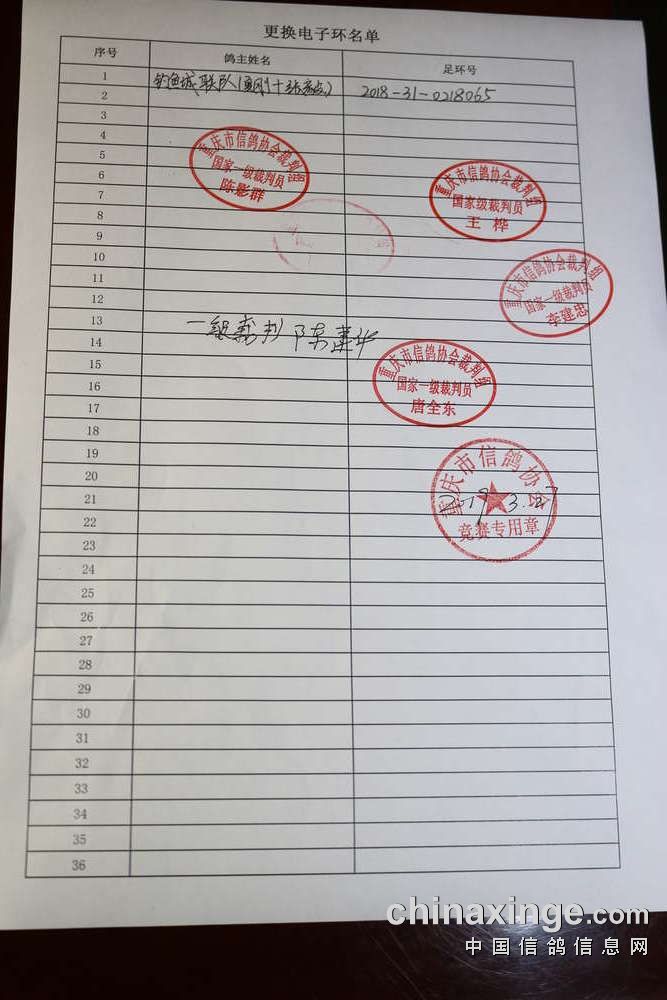 更换电子环名单
序号 鸽主姓名 足环号
1 钓鱼城联队 2018-31-0218065
2
3
4
5
6
7
8
9
10
11
12
13
14
15
16
17
18
19
20
21
22
23
24
25
26
27
28
29
30
31
32
33
34
35
36
重庆市信鸽协会裁判组
国家一级裁判员
陈影群
重庆市信鸽协会裁判组
国家级裁判员
王桦
重庆市信鸽协会裁判组
国家一级裁判员
李建忠
一级裁判
重庆市信鸽协会裁判组
国家一级裁判员
唐全东
重庆市信鸽协会
2019.3.27
竞赛专用章
chinaxinge.com
中国信鸽信息网